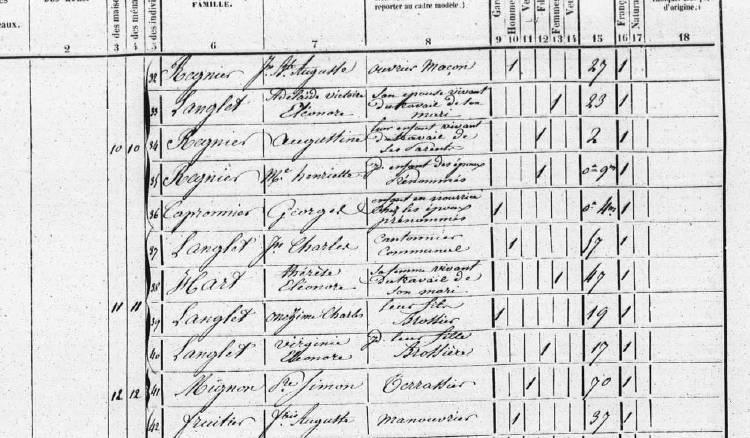 eaux.
FAMILLE.
reporter au cadre modèle.)
d'origine.)
des maisons
des individus
Hommes
Femmes
Français
2 3 4 5 6 7 8 9 10 11 12 13 14 15 16 17 18
32 Regnier Auguste ouvrier Maçon 1 27 1
33 Langlet Adelaïde victoire Eléonore Son épouse vivant du travail de son mari 1 23 1
10 10 34 Regnier Augustine leur enfant vivant du travail de ses Parents 1 2 1
35 Regnier Mie henriette id. enfant des époux Prénommés 1 0an 9m 1
36 Capronnier Georges enfant en nourrice chez les époux prénommés 1 0an 4m 1
37 Langlet Jn Charles Cantonnier Communal 1 57 1
38 Hart thérèse Eléonore Sa femme vivant du travail de son mari 1 47 1
11 11 39 Langlet onézime Charles leur fils Brossier 1 19 1
40 Langlet virginie Eleonore id. leur fille Brossière 1 17 1
12 12 41 Mignon Pre Simon Terrassier 1 70 1
42 fruitier fois Auguste Manouvrier 1 37 1